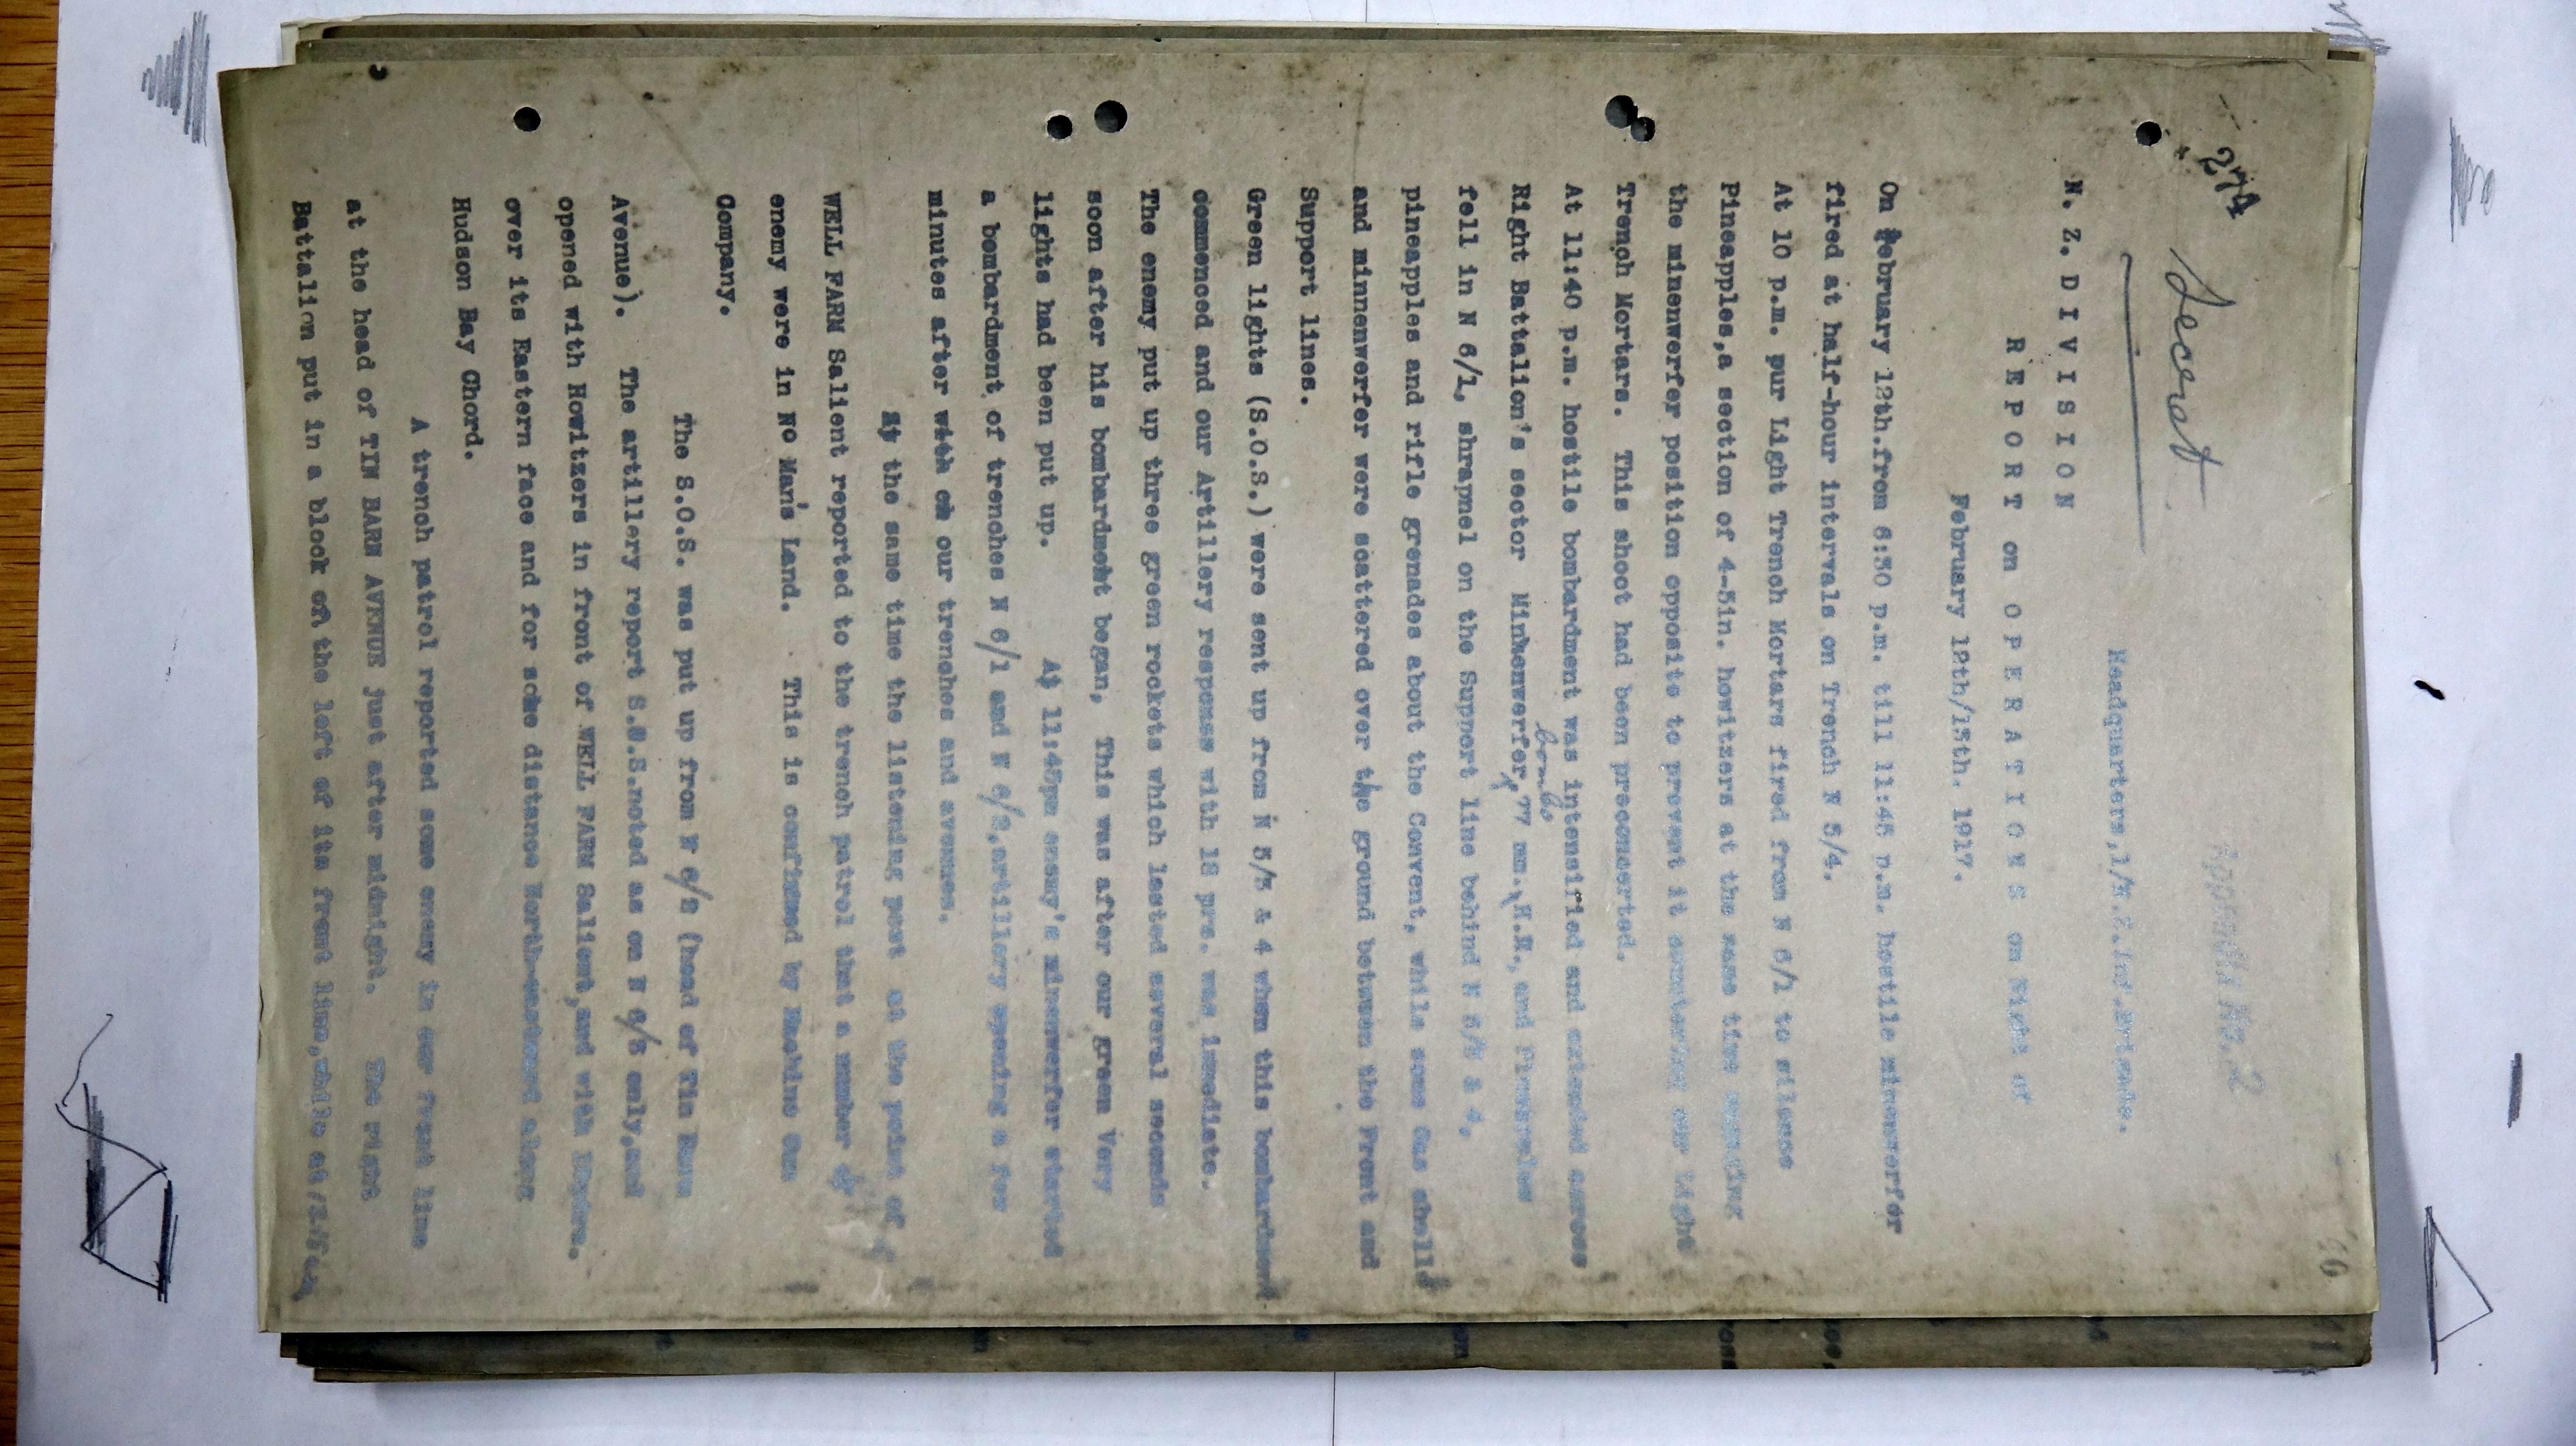 274
Secret
Appendix No. 2
Headquarters, 1/N.Z.Inf.Brigade.
N. Z. D I V I S I O N
R E P O R T on O P E R A T I O N S on Night of
February 12th/13th. 1917.
On February 12th.from 6:30 p.m. till 11:45 p.m. hostile minenwerfer
fired at half-hour intervals on Trench N 5/4.
At 10 p.m. pur Light Trench Mortars fired from N 6/1 to silence
Pineapples,a section of 4-5in. howitzers at the same time engaging
the minenwerfer position opposite to prevent it countering our Light
Trench Mortars. This shoot had been preconcerted.
At 11:40 p.m. hostile bombardment was intensified and extended across
bombs
Right Battalion's sector Minhenwerfer, 77 mm. H.E., and Pineapples
fell in N 6/1, shrapnel on the Support line behind N 5/3 & 4,
pineapples and rifle grenades about the Convent, while some Gas shells
and minnenwerfer were scattered over the ground between the Front and
Support lines.
Green lights (S.O.S.) were sent up from N 5/3 & 4 when this bombardment
commenced and our Artillery response with 18 prs. was immediate.
The enemy put up three green rockets which lasted several seconds
soon after his bombardment began, This was after our green Very
lights had been put up. At 11:45pm enemy's minenwerfer started
a bombardment of trenches N 6/1 and N 6/2,artillery opening a few
minutes after with on our trenches and avenues.
At the same time the listening post at the point of
WELL FARM Salient reported to the trench patrol that a number of
enemy were in No Man's Land. This is confirmed by Machine Gun
Company.
The S.O.S. was put up from N 6/2 (head of Tin Barn
Avenue). The artillery report S.O.S.noted as on N 6/3 only,and
opened with Howitzers in front of WELL FARM Salient,and with 18pdrs.
over its Eastern face and for some distance North-eastward along
Hudson Bay Chord.
A trench patrol reported some enemy in our front line
at the head of TIN BARN AVENUE just after midnight. The right
Battalion put in a block on the left of its front line,while at